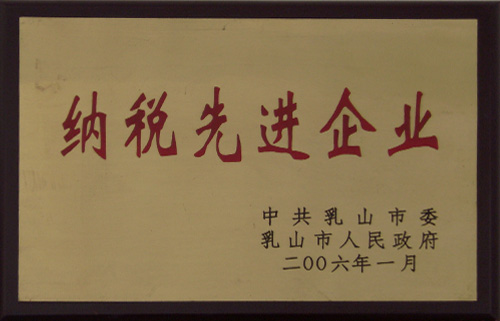 纳税先进企业
中共乳山市委
乳山市人民政府
二〇〇六年一月